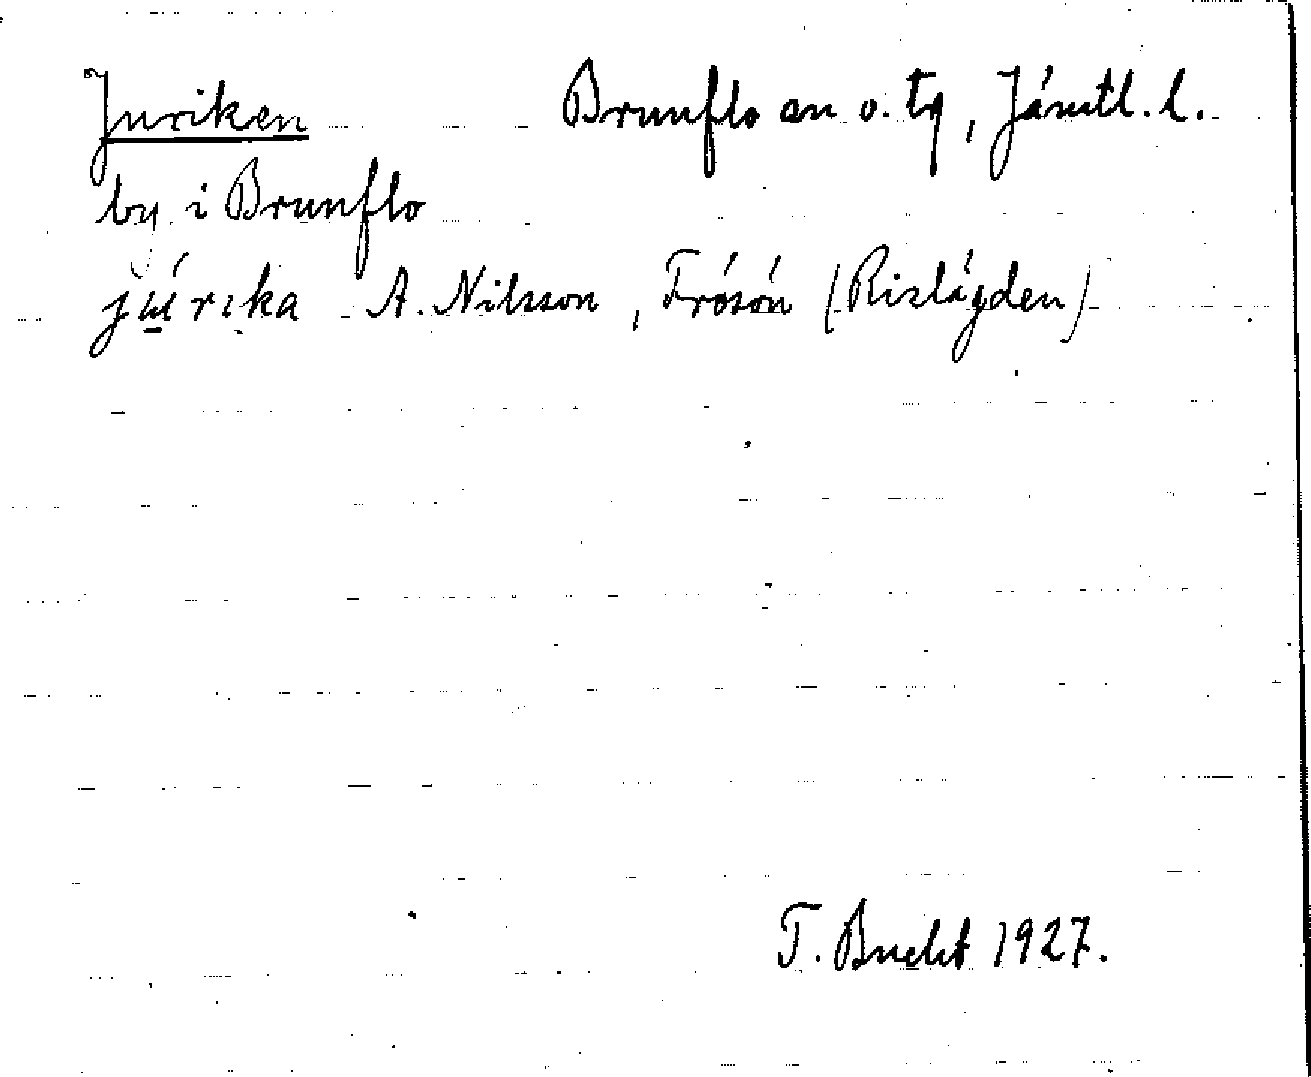 Juriken Brunflo sn o. tg, Jämtl. l.
by i Brunflo
jŭ́rıka A. Nilsson, Frösön (Rislägden)
T. Bucht 1927.